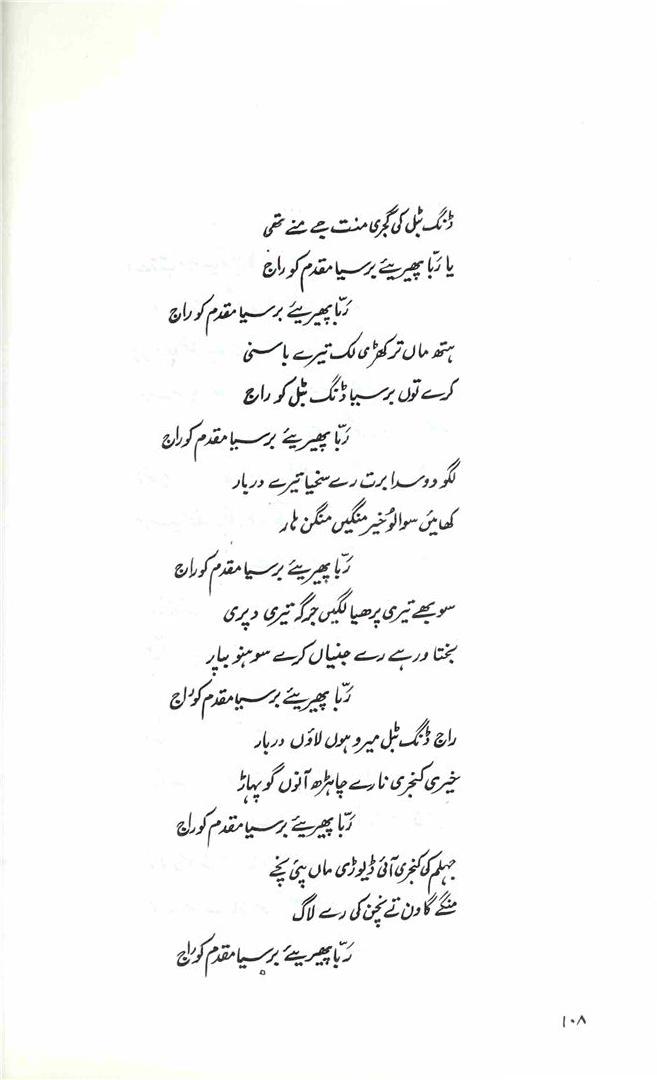 ڈنگ ٹبل کی گجری منت جے منے تھی
یا ربّا پھیریئے برسیا مقدم کو راج
ربّا پھیریئے برسیا مقدم کو راج
ہتھ ماں ترکھڑی لک تیرے باسنی
کرے توں برسیا ڈنگ ٹبل کو راج
ربّا پھیریئے برسیا مقدم کو راج
لگو دو سدا برت رے سخیا تیرے دربار
کھائیں سوالو خیر منگیں منگن ہار
ربّا پھیریئے برسیا مقدم کو راج
سوبھے تیری پرھیا لگیں جرگہ تیری دپری
بختاور ہے رے جنیاں کرے سوہنو بپار
ربّا پھیریئے برسیا مقدم کو راج
راج ڈنگ ٹبل میرو ہوں لاؤں دربار
خیری کنجری نا رے چاہڑھ آنوں گو پہاڑ
ربّا پھیریئے برسیا مقدم کو راج
جہلم کی کنجری آئی ڈیوڑی ماں پئی نچے
منگے گاون تے نچن کی رے لاگ
ربّا پھیریئے برسیا مقدم کو راج
۱۰۸